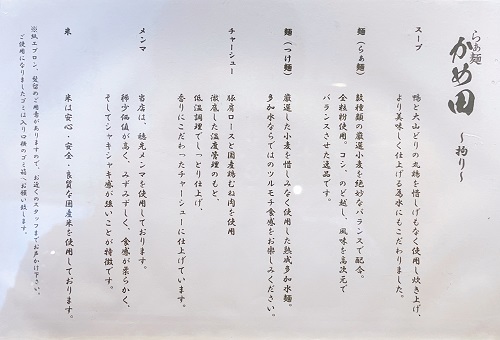 らぁ麺
かめ田
〜拘り〜
スープ
鴨と大山どりの丸鶏を惜しげもなく使用し炊き上げ、
より美味しく仕上げる為水にもこだわりました。
麺（らぁ麺）
数種類の厳選小麦を絶妙なバランスで配合。
全粒粉使用。コシ、のど越し、風味を高次元で
バランスさせた逸品です。
麺（つけ麺）
厳選した小麦を惜しみなく使用した熟成多加水麺。
多加水ならではのツルモチ食感をお楽しみください。
チャーシュー
豚肩ロースと国産鶏むね肉を使用
徹底した温度管理のもと、
低温調理でしっとり仕上げ、
香りにこだわったチャーシューに仕上げています。
メンマ
当店は、穂先メンマを使用しております。
稀少価値が高く、みずみずしく、食感が柔らかく、
そしてシャキシャキ感が強いことが特徴です。
米
米は安心・安全・良質な国産米を使用しております。
※紙エプロン、髪留めご用意がありますので、お近くのスタッフまでお声かけ下さい。
ご使用になりましたゴミは入り口横のゴミ箱へお願い致します。